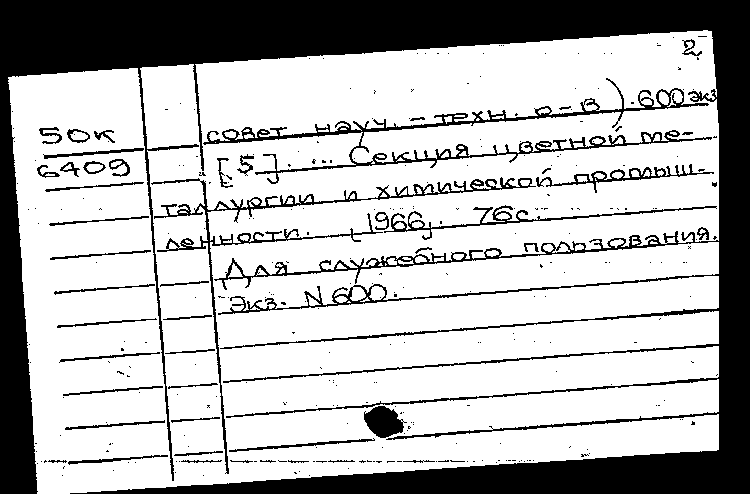 2
50К совет науч. - техн. о-в). 600 экз
6409 [5]. ... Секция цветной ме-
таллургии и химической промыш-
ленности. [1966]. 76с.
Для служебного пользования.
Экз. N 600.